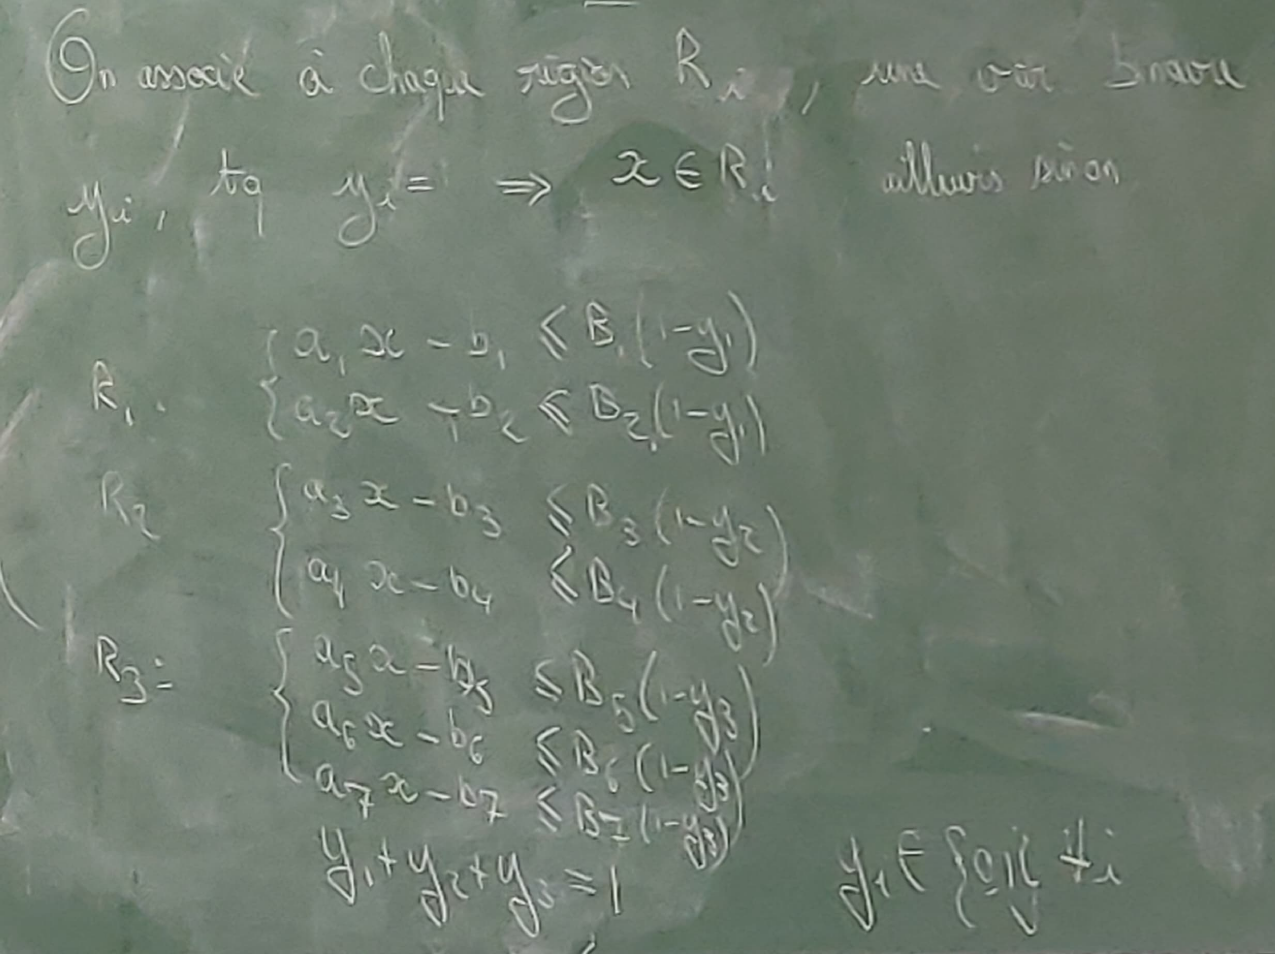 On associe à chaque région R_i, une var binaire
y_i, tq y_i = 1 ⇒ x ∈ R_i ailleurs sinon
R_1. { a_1 x - b_1 ⩽ B_1 (1-y_1)
a_2 x - b_2 ⩽ B_2 (1-y_1)
R_2 { a_3 x - b_3 ⩽ B_3 (1-y_2)
a_4 x - b_4 ⩽ B_4 (1-y_2)
R_3 = { a_5 x - b_5 ⩽ B_5 (1-y_3)
a_6 x - b_6 ⩽ B_6 (1-y_3)
a_7 x - b_7 ⩽ B_7 (1-y_3)
y_1 + y_2 + y_3 = 1 y_i ∈ {0,1} ∀i